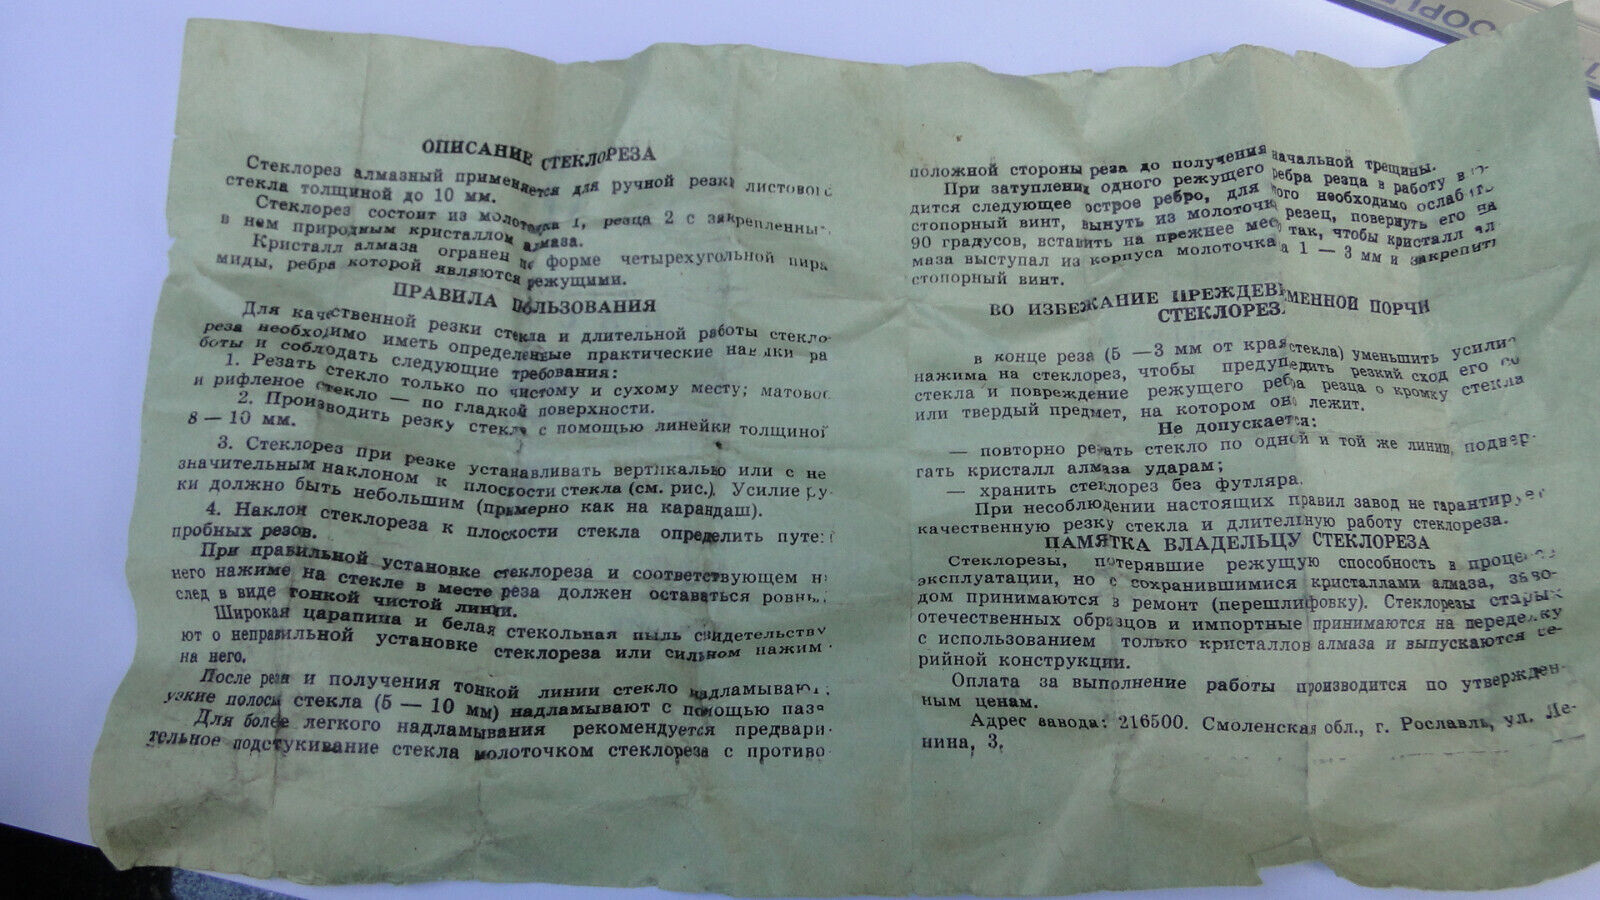 ОПИСАНИЕ СТЕКЛОРЕЗА
Стеклорез алмазный применяется для ручной резки листового
стекла толщиной до 10 мм.
Стеклорез состоит из молоточка 1, резца 2 с закрепленны
в нем природным кристаллом алмаза.
Кристалл алмаза огранен по форме четырехугольной пира
миды, ребра которой являются режущими.
ПРАВИЛА ПОЛЬЗОВАНИЯ
Для качественной резки стекла и длительной работы стекло-
реза необходимо иметь определенные практические навыки ра
боты и соблюдать следующие требования:
1. Резать стекло только по чистому и сухому месту; матовое
и рифленое стекло — по гладкой поверхности.
2. Производить резку стекла с помощью линейки толщиной
8 — 10 мм.
3. Стеклорез при резке устанавливать вертикалью или с не
значительным наклоном к плоскости стекла (см. рис.). Усилие ру-
ки должно быть небольшим (примерно как на карандаш).
4. Наклон стеклореза к плоскости стекла определить путем
пробных резов.
При правильной установке стеклореза и соответствующем н
него нажиме на стекле в месте реза должен оставаться ровный
след в виде тонкой чистой линии.
Широкая царапина и белая стекольная пыль свидетельству
ют о неправильной установке стеклореза или сильном нажим
на него.
После реза и получения тонкой линии стекло надламывают,
узкие полосы стекла (5 — 10 мм) надламывают с помощью паза
Для более легкого надламывания рекомендуется предвари-
тельное подстукивание стекла молоточком стеклореза с противо-
положной стороны реза до получения начальной трещины.
При затуплении одного режущего ребра резца в работу вво-
дится следующее острое ребро, для этого необходимо ослабить
стопорный винт, вынуть из молоточка резец, повернуть его на
90 градусов, вставить на прежнее место так, чтобы кристалл ал-
маза выступал из корпуса молоточка на 1 — 3 мм и закрепить
стопорный винт.
ВО ИЗБЕЖАНИЕ ПРЕЖДЕВРЕМЕННОЙ ПОРЧИ
СТЕКЛОРЕЗА
в конце реза (5 —3 мм от края стекла) уменьшить усилие
нажима на стеклорез, чтобы предупредить резкий сход его со
стекла и повреждение режущего ребра резца о кромку стекла
или твердый предмет, на котором оно лежит.
Не допускается:
— повторно резать стекло по одной и той же линии, подвер-
гать кристалл алмаза ударам;
— хранить стеклорез без футляра.
При несоблюдении настоящих правил завод не гарантирует
качественную резку стекла и длительную работу стеклореза.
ПАМЯТКА ВЛАДЕЛЬЦУ СТЕКЛОРЕЗА
Стеклорезы, потерявшие режущую способность в процессе
эксплуатации, но с сохранившимися кристаллами алмаза, заво-
дом принимаются в ремонт (перешлифовку). Стеклорезы старых
отечественных образцов и импортные принимаются на переделку
с использованием только кристаллов алмаза и выпускаются се-
рийной конструкции.
Оплата за выполнение работы производится по утвержден-
ным ценам.
Адрес завода: 216500. Смоленская обл., г. Рославль, ул. Ле-
нина, 3.